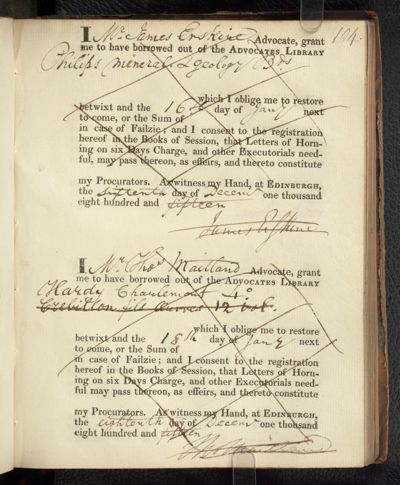 104.
I Mr James Erskine Advocate, grant
me to have borrowed out of the ADVOCATES LIBRARY
Philips mineral & geology
which I oblige me to restore
betwixt and the 16th day of Jany next
to come, or the Sum of
in case of Failzie; and I consent to the registration
hereof in the Books of Session, that Letters of Horn-
ing on six Days Charge, and other Executorials need-
ful, may pass thereon, as effeirs, and thereto constitute
my Procurators. As witness my Hand, at EDINBURGH,
the sixteenth day of Decem one thousand
eight hundred and fifteen
James Erskine
I Mr Thos Maitland Advocate, grant
me to have borrowed out of the ADVOCATES LIBRARY
Hardy Charlemont 4o
Crebillon fils 12 vols.
which I oblige me to restore
betwixt and the 18th day of Jany next
to come, or the Sum of
in case of Failzie; and I consent to the registration
hereof in the Books of Session, that Letters of Horn-
ing on six Days Charge, and other Executorials need-
ful may pass thereon, as effeirs, and thereto constitute
my Procurators. As witness my Hand, at EDINBURGH,
the eighteenth day of Decem one thousand
eight hundred and fifteen
Tho Maitland